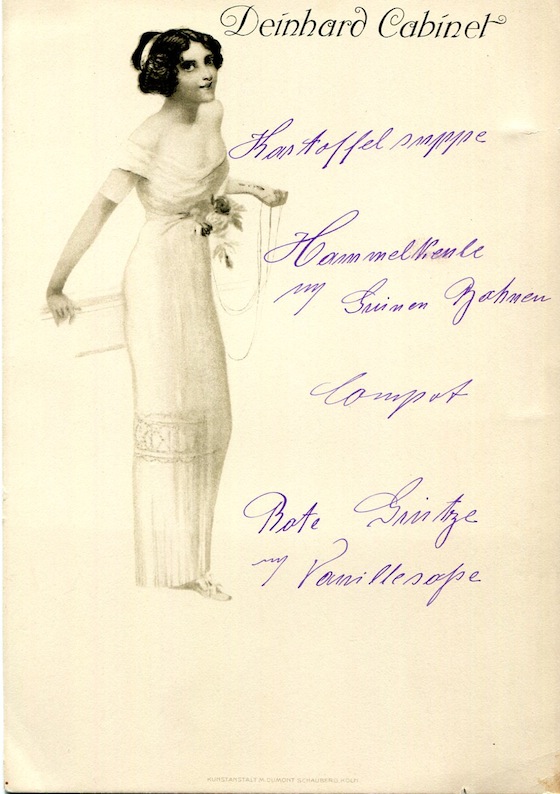 Deinhard Cabinet
Kartoffelsuppe
Hammelkeule
m/ Grünen Bohnen
Compot
Rote Grütze
m/ Vanillesoße
KUNSTANSTALT M. DUMONT SCHAUBERG, KÖLN.